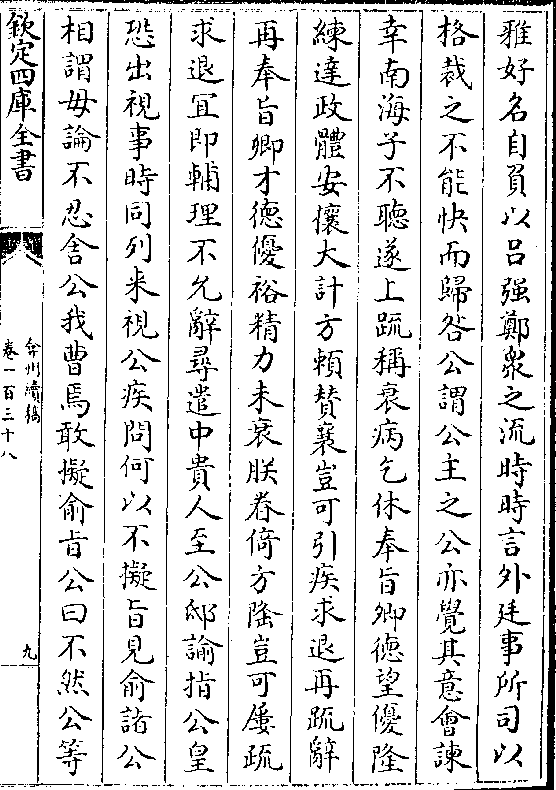 雅好名自負以呂强鄭衆之流時時言外廷事所司以
格裁之不能快而歸咎公謂公主之公亦覺其意會諫
幸南海子不聽遂上疏稱衰病乞休奉旨卿德望優隆
練達政體安攘大計方頼賛襄豈可引疾求退再疏辭
再奉旨卿才德優裕精力未衰朕眷倚方隆豈可屢疏
求退冝即輔理不允辭尋遣中貴人至公邸諭指公皇
恐出視事時同列来視公疾問何以不擬旨見俞諸公
相謂毋論不忍舍公我曹焉敢擬俞㫖公曰不然公等
欽定四庫全書
弇州續稿
卷一百三十八
九